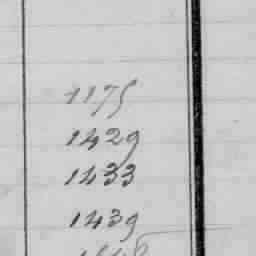 1175
1429
1433
1439